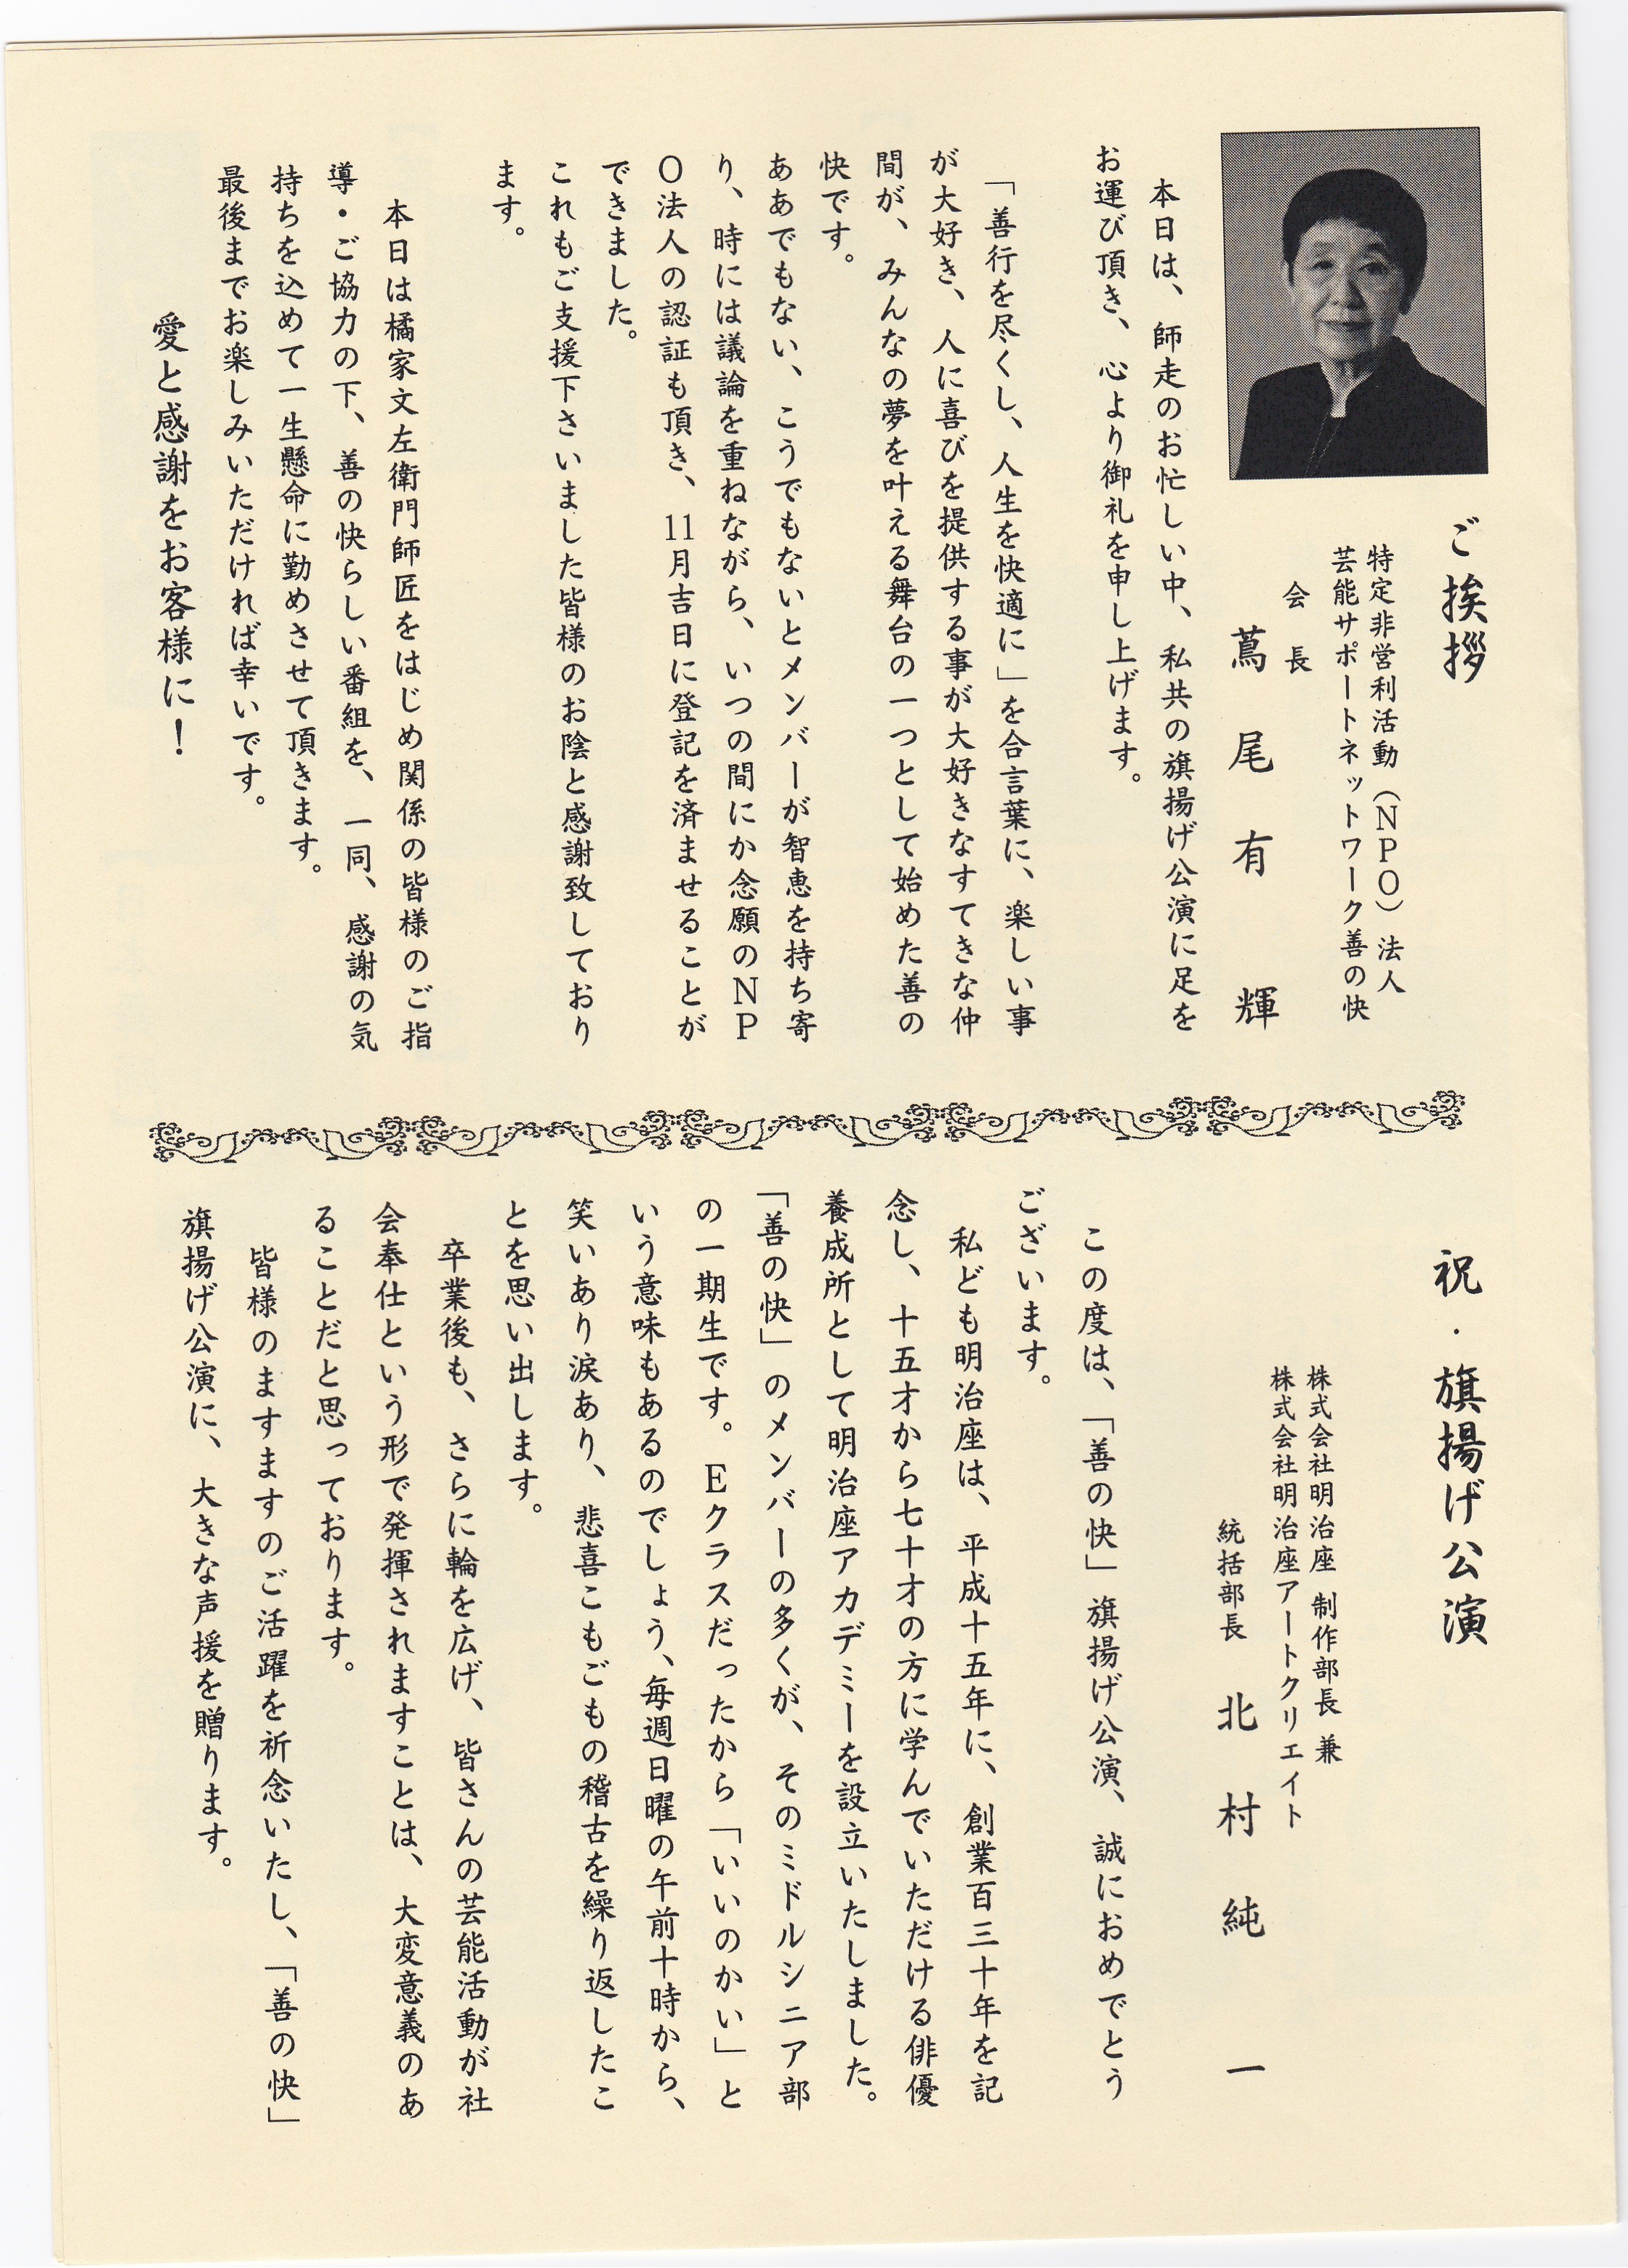 ご挨拶
特定非営利活動（NPO）法人
芸能サポートネットワーク善の快
会長
蔦尾有輝
本日は、師走のお忙しい中、私共の旗揚げ公演に足を
お運び頂き、心より御礼を申し上げます。
「善行を尽くし、人生を快適に」を合言葉に、楽しい事
が大好き、人に喜びを提供する事が大好きなすてきな仲
間が、みんなの夢を叶える舞台の一つとして始めた善の
快です。
ああでもない、こうでもないとメンバーが智恵を持ち寄
り、時には議論を重ねながら、いつの間にか念願のNP
O法人の認証も頂き、11月吉日に登記を済ませることが
できました。
これもご支援下さいました皆様のお陰と感謝致しており
ます。
本日は橘家文左衛門師匠をはじめ関係の皆様のご指
導・ご協力の下、善の快らしい番組を、一同、感謝の気
持ちを込めて一生懸命に勤めさせて頂きます。
最後までお楽しみいただければ幸いです。
愛と感謝をお客様に！
祝・旗揚げ公演
株式会社明治座 制作部長 兼
株式会社明治座アートクリエイト
統括部長 北村純一
この度は、「善の快」旗揚げ公演、誠におめでとう
ございます。
私ども明治座は、平成十五年に、創業百三十年を記
念し、十五才から七十才の方に学んでいただける俳優
養成所として明治座アカデミーを設立いたしました。
「善の快」のメンバーの多くが、そのミドルシニア部
の一期生です。Eクラスだったから「いいのかい」と
いう意味もあるのでしょう、毎週日曜の午前十時から、
笑いあり涙あり、悲喜こもごもの稽古を繰り返したこ
とを思い出します。
卒業後も、さらに輪を広げ、皆さんの芸能活動が社
会奉仕という形で発揮されますことは、大変意義のあ
ることだと思っております。
皆様のますますのご活躍を祈念いたし、「善の快」
旗揚げ公演に、大きな声援を贈ります。